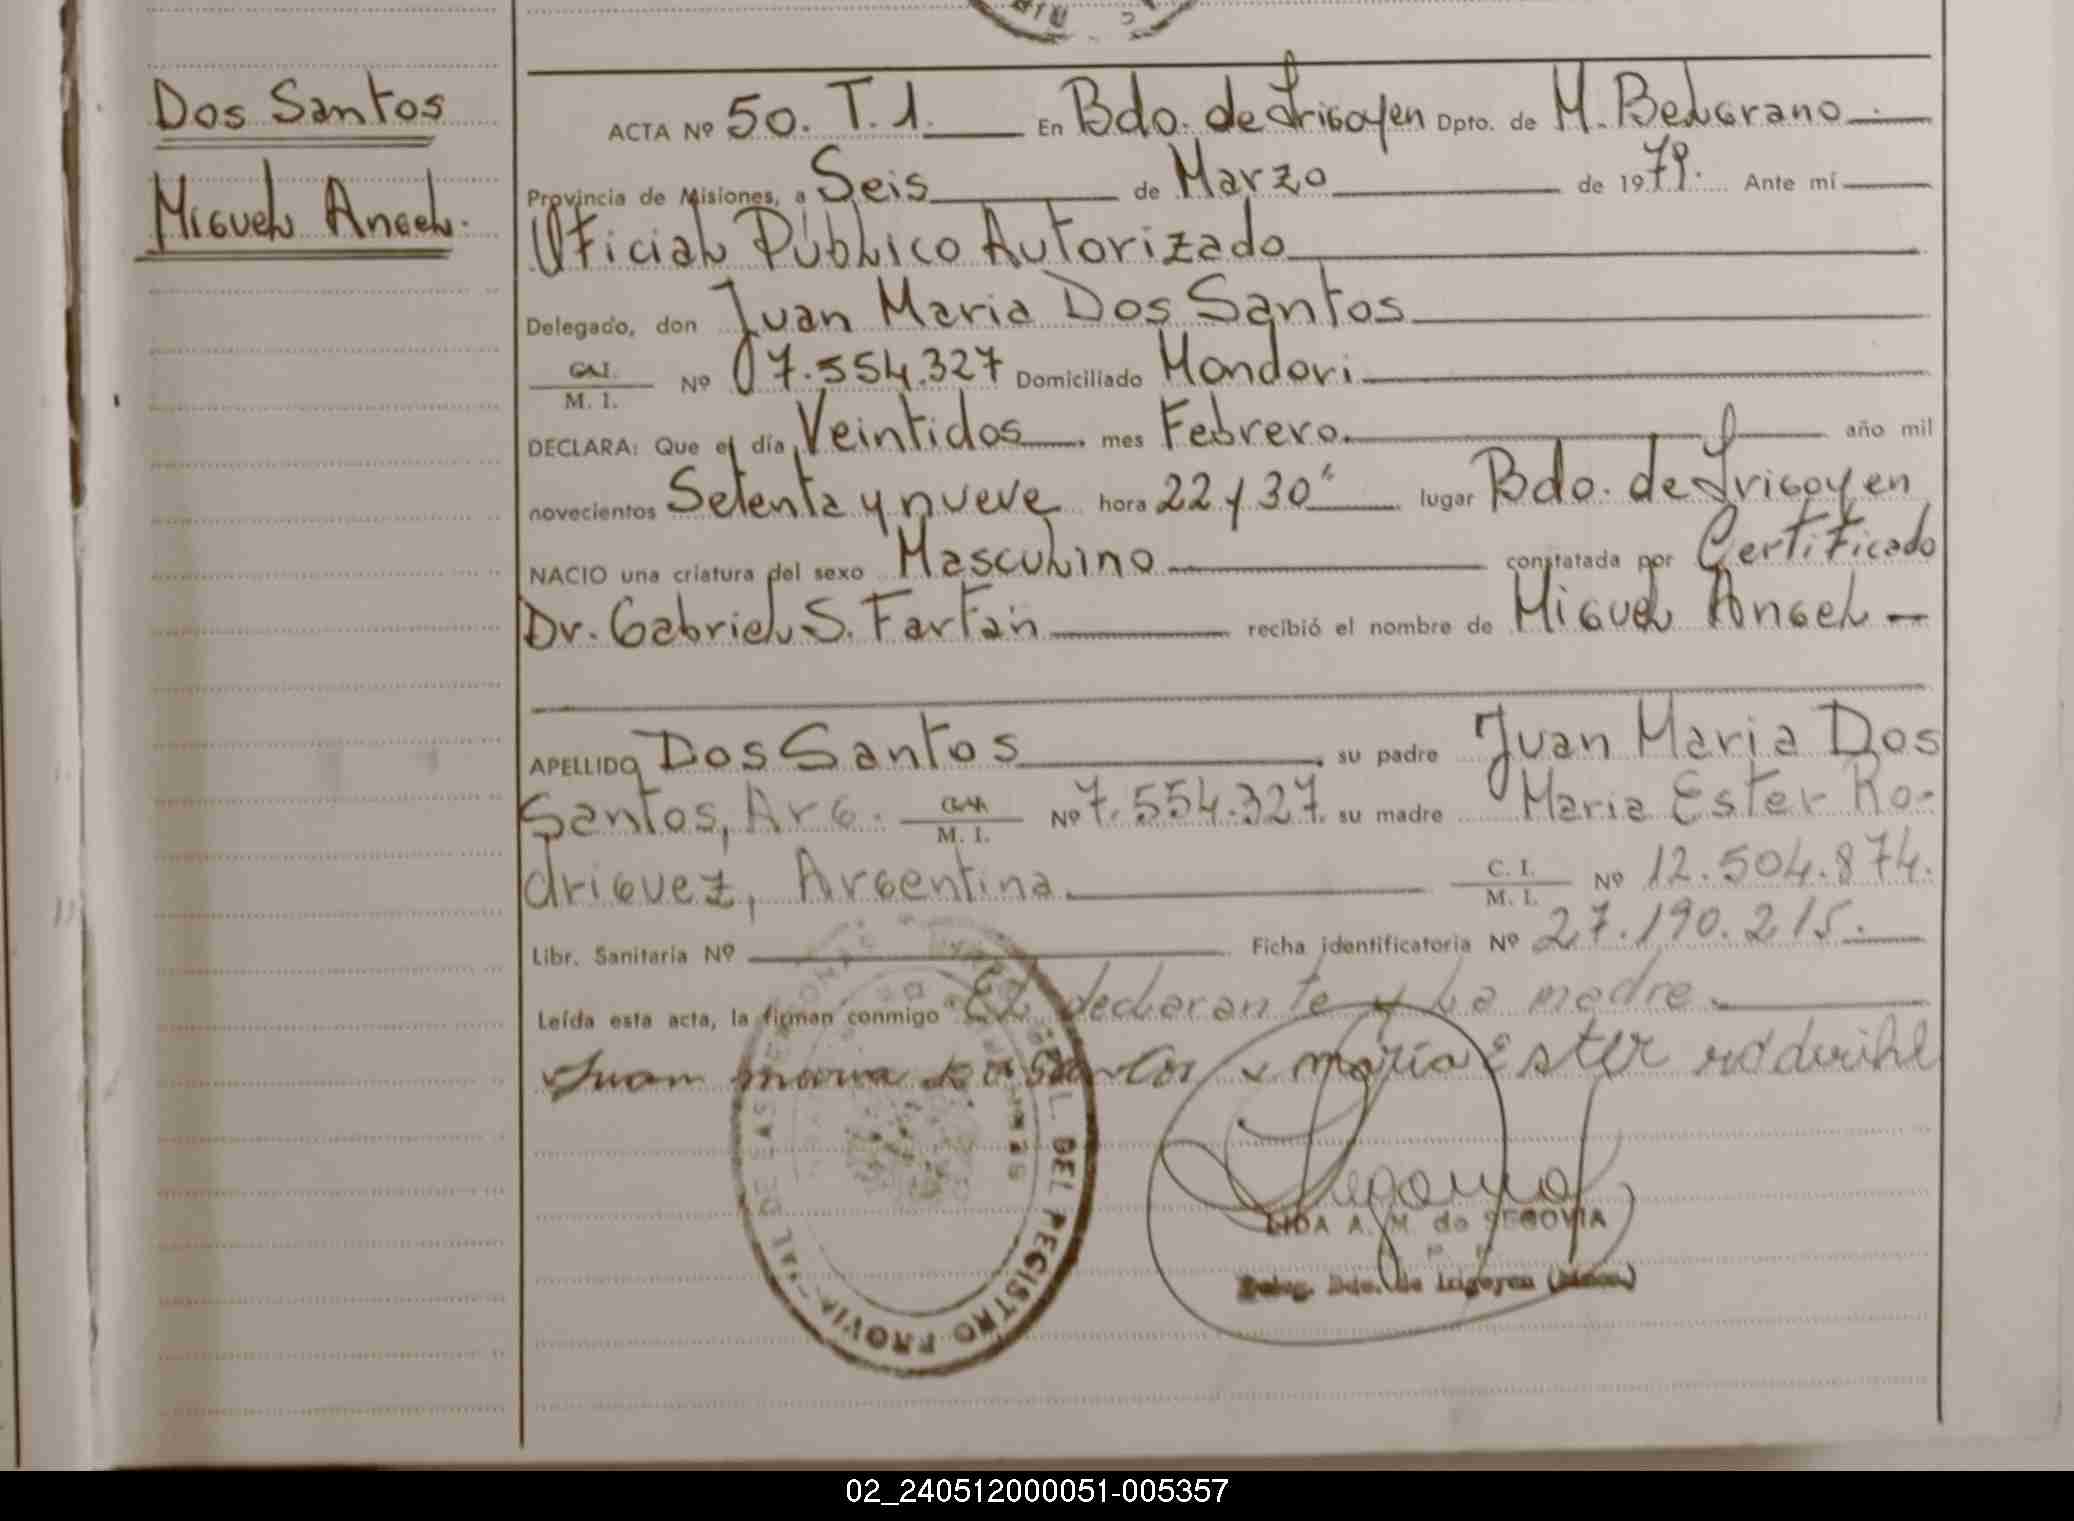 Dos Santos
Miguel Angel.
ACTA Nº 50. T. 1. En Bdo. de Irigoyen Dpto. de M. Belgrano
Provincia de Misiones, a Seis de Marzo de 1979. Ante mí
Oficial Público Autorizado
Delegado, don Juan Maria Dos Santos
M. I. Nº 7.554.327 Domiciliado Mondori
DECLARA: Que el día Veintidos mes Febrero. año mil
novecientos Setenta y nueve hora 22 y 30" lugar Bdo. de Irigoyen
NACIO una criatura del sexo Masculino constatada por Certificado
Dr. Gabriel S. Farfán recibió el nombre de Miguel Angel
APELLIDO Dos Santos su padre Juan Maria Dos
Santos, Arg. M. I. Nº 7.554.327. su madre Maria Ester Ro-
driguez, Argentina C. I. M. I. Nº 12.504.874.
Libr. Sanitaria Nº Ficha identificatoria Nº 27.190.215.
Leída esta acta, la firman conmigo El declarante y La madre.
Juan maria maría Ester
DEL REGISTRO PROVIAL DE LAS
LIDA A. M. de SEGOVIA
Deleg. Bdo. de Irigoyen
02_240512000051-005357